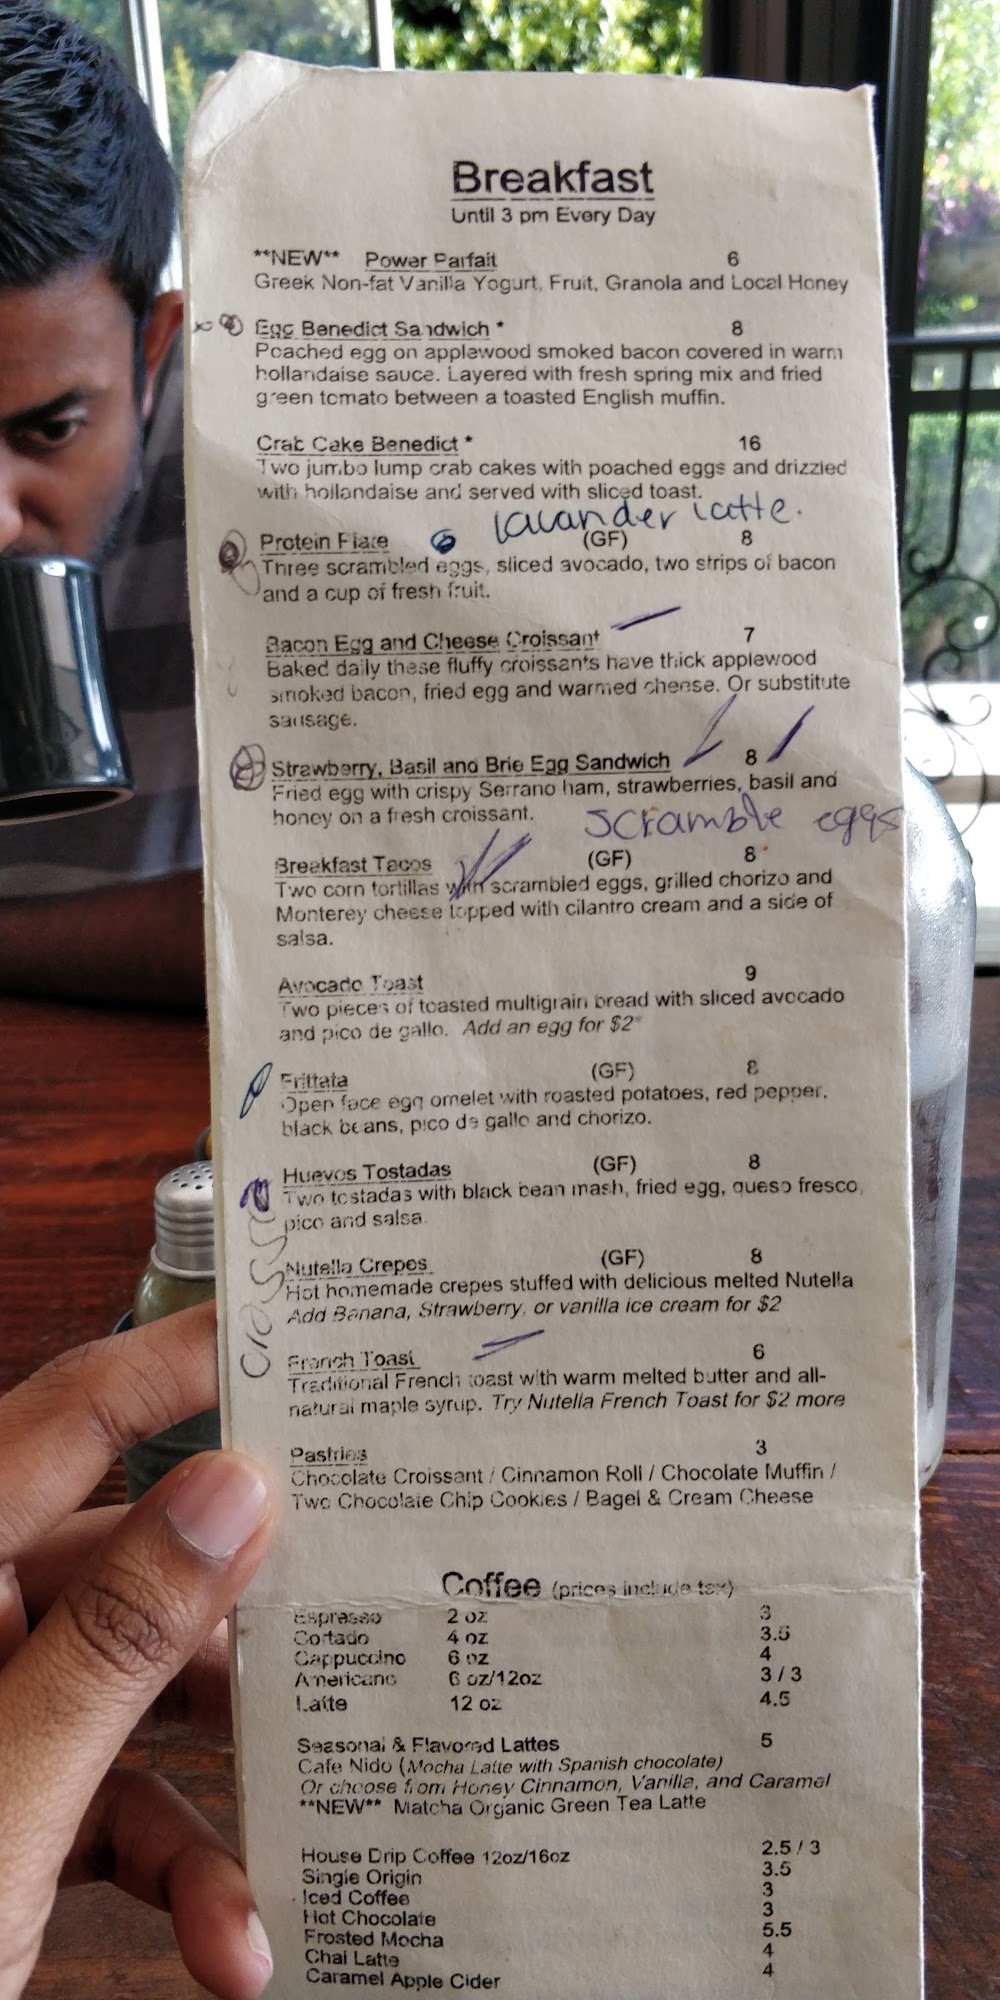 Breakfast
Until 3 pm Every Day
**NEW** Power Parfait 6
Greek Non-fat Vanilla Yogurt, Fruit, Granola and Local Honey
Egg Benedict Sandwich * 8
Poached egg on applewood smoked bacon covered in warm
hollandaise sauce. Layered with fresh spring mix and fried
green tomato between a toasted English muffin.
Crab Cake Benedict * 16
Two jumbo lump crab cakes with poached eggs and drizzled
with hollandaise and served with sliced toast.
lavander latte.
Protein Plate (GF) 8
Three scrambled eggs, sliced avocado, two strips of bacon
and a cup of fresh fruit.
Bacon Egg and Cheese Croissant 7
Baked daily these fluffy croissants have thick applewood
smoked bacon, fried egg and warmed cheese. Or substitute
sausage.
Strawberry, Basil and Brie Egg Sandwich 8
Fried egg with crispy Serrano ham, strawberries, basil and
honey on a fresh croissant.
scramble eggs
Breakfast Tacos (GF) 8
Two corn tortillas with scrambled eggs, grilled chorizo and
Monterey cheese topped with cilantro cream and a side of
salsa.
Avocado Toast 9
Two pieces of toasted multigrain bread with sliced avocado
and pico de gallo. Add an egg for $2*
Frittata (GF) 8
Open face egg omelet with roasted potatoes, red pepper,
black beans, pico de gallo and chorizo.
Huevos Tostadas (GF) 8
Two tostadas with black bean mash, fried egg, queso fresco,
pico and salsa.
Nutella Crepes (GF) 8
Hot homemade crepes stuffed with delicious melted Nutella
Add Banana, Strawberry, or vanilla ice cream for $2
French Toast 6
Traditional French toast with warm melted butter and all-
natural maple syrup. Try Nutella French Toast for $2 more
Pastries 3
Chocolate Croissant / Cinnamon Roll / Chocolate Muffin /
Two Chocolate Chip Cookies / Bagel & Cream Cheese
Coffee (prices include tax)
Espresso 2 oz 3
Cortado 4 oz 3.5
Cappuccino 6 oz 4
Americano 6 oz/12oz 3 / 3
Latte 12 oz 4.5
Seasonal & Flavored Lattes 5
Cafe Nido (Mocha Latte with Spanish chocolate)
Or choose from Honey Cinnamon, Vanilla, and Caramel
**NEW** Matcha Organic Green Tea Latte
House Drip Coffee 12oz/16oz 2.5 / 3
Single Origin 3.5
Iced Coffee 3
Hot Chocolate 3
Frosted Mocha 5.5
Chai Latte 4
Caramel Apple Cider 4